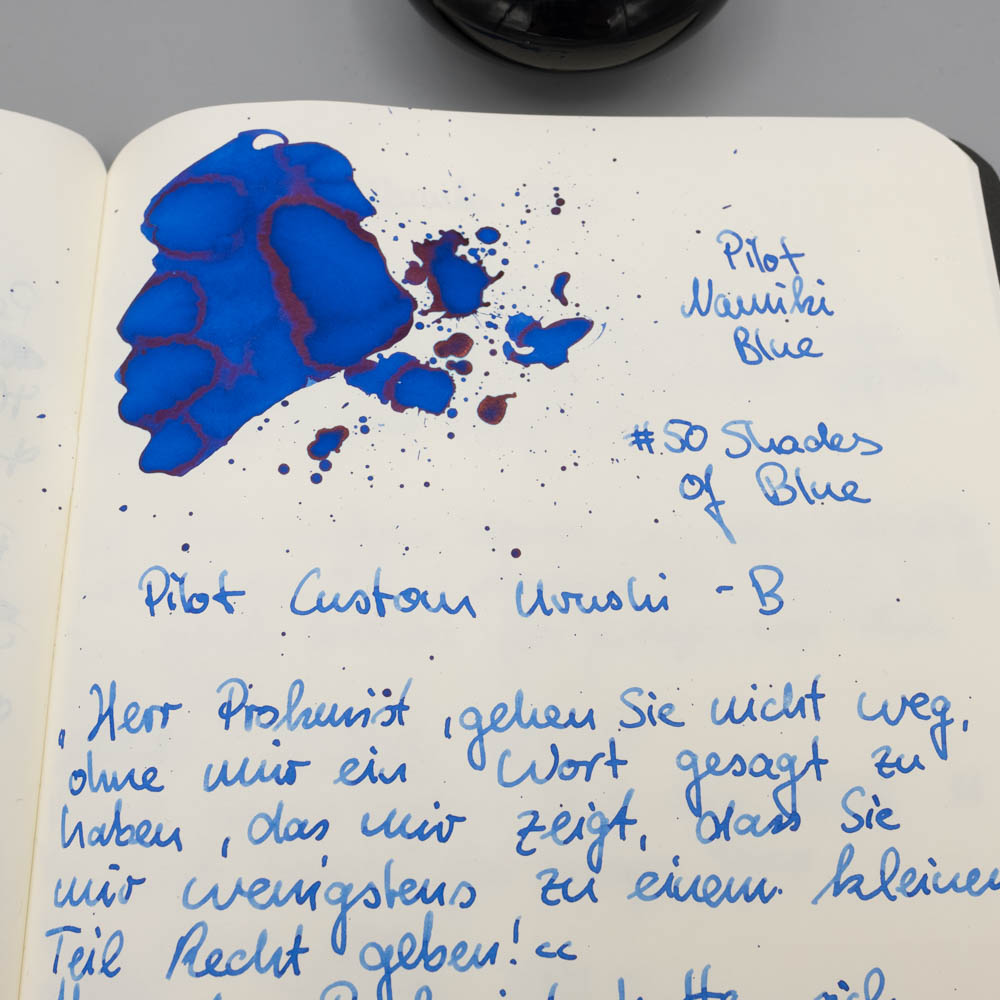 Pilot
Namiki
Blue
#50 Shades
of Blue
Pilot Custom Urushi - B
„Herr Prokurist, gehen Sie nicht weg,
ohne mir ein Wort gesagt zu
haben, das mir zeigt, dass Sie
mir wenigstens zu einem kleinen
Teil Recht geben!“